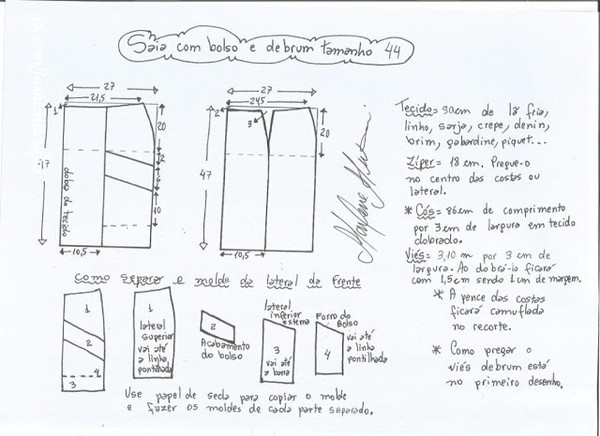 Saia com bolso e debrum tamanho 44
27
21,5
1
20
47
2
10
dobra do tecido
10,5
27
24,5
2
3
20
47
10,5
Tecido= 90cm de lã fria,
linho, sarja, crepe, denin,
brim, gabardine, piquet...
Zíper= 18 cm. Pregue-o
no centro das costas ou
lateral.
* Cós= 86cm de comprimento
por 3cm de largura em tecido
dobrado.
Viés= 3,10 m por 3 cm de
largura. Ao dobrá-lo ficará
com 1,5cm sendo 1cm de margem.
* A pence das costas
ficará camuflada
no recorte.
* Como pregar o
viés debrum está
no primeiro desenho.
Como separar o molde da lateral da frente
1
2
4
3
1
lateral
superior
vai até
a linha
pontilhada
2
Acabamento
do bolso
lateral
inferior
externa
3
vai até
a barra
Forro do
Bolso
vai até
a linha
pontilhada
4
Use papel de seda para copiar o molde
e fazer os moldes de cada parte separado.